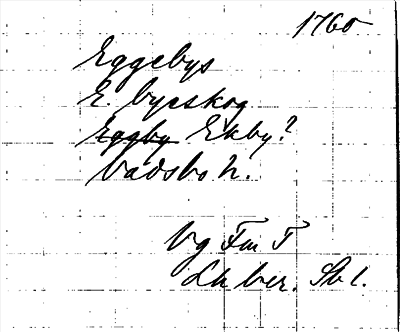 1760
Eggebys
E. byeskog
Eggby Ekby?
Vadsbo h.
Vg Fm T
Lh ber. Sbl.